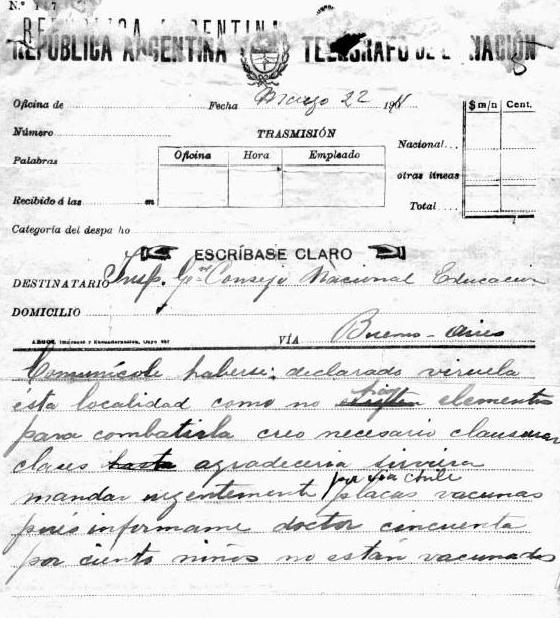 N.º 117
REPÚBLICA ARGENTINA
REPÚBLICA ARGENTINA TELÉGRAFO DE LA NACIÓN
Oficina de Fecha Marzo 22 1911
$ m/n Cent.
Número TRASMISIÓN
Nacional
Palabras Oficina Hora Empleado
otras líneas
Recibido á las m
Total
Categoría del despacho
ESCRÍBASE CLARO
DESTINATARIO Insp. Gral Consejo Nacional Educacion
DOMICILIO
VÍA Buenos-Aires
Comunícole haberse declarado viruela
esta localidad como no hay elementos
para combatirla creo necesario clausurar
clases hasta agradeceria sirviera
mandar urgentemente por via Chile placas vacunas
pues informame doctor cincuenta
por ciento niños no están vacunados